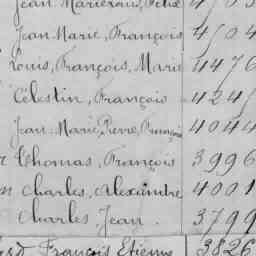 Jean Marie, François 4504
Louis, François, Marie 4476
Célestin, François 424
Jean Marie, Pierre, François 4044
Thomas, François 3996
Charles, Alexandre 4001
Charles, Jean. 3799
François Etienne 3826